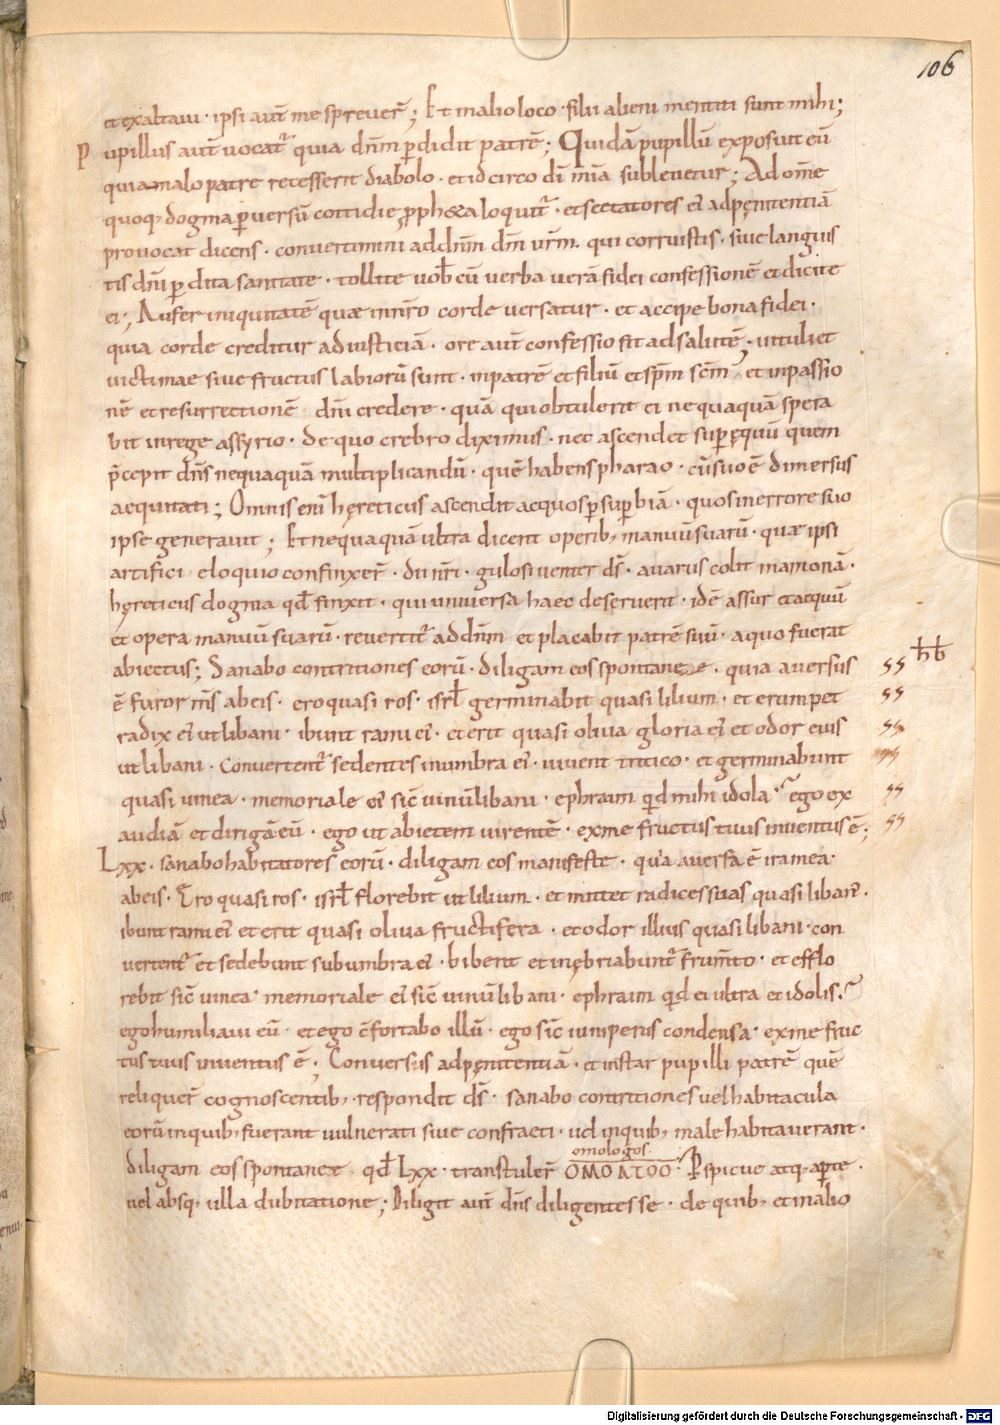 106
et exaltaui · ipsi aut̄ me spreuer̄; Et in alio loco · filii alieni mentiti sunt mihi;
Pupillus aut̄ uocat᷑ quia dn̄m ꝑdidit patrē; Quidā pupillū exposuit eū
quia malo patre recesserit diabolo · et idcirco dī mīa subleuetur; Ad om̄e
quoq; dogma ꝑuersū cottidie ꝓpheta loquit᷑ · et sectatores ei᷑ ad pęnitentiā
prouocat dicens · conuertimini ad dn̄m dm̄ ur̄m · qui corruistis · siue languis
tis dn̄i ꝑdita sanitate · tollite uob̄ cū uerba uerā fidei confessionē et dicite
ei; Aufer iniquitatē quæ in nr̄o corde uersatur · et accipe bona fidei ·
quia corde creditur ad iusticiā · ore aut̄ confessio fit ad salutē; uituli et
uictimae siue fructus labiorū sunt · in patrē et filiū et sp̄m sc̄m · et in passio
nē et resurrectionē dn̄i credere · quā qui obtulerit ei nequaquā spera
bit in rege assyrio · de quo crebro diximus · nec ascendet suꝑ ęquū quem
p̄cepit dn̄s nequaquā multiplicandū · quē habens pharao · cū suo ē dimersus
aequitati; Omnis eni᷑ hęreticus ascendit aequos ꝑ suꝑbiā · quos in errore suo
ipse generauit; Et nequaquā ultra dicent operib; manuū suarū · quæ ipsi
artifici eloquio confinxer̄ · dii nr̄i · gulosi uenter ds̄ · auarus colit mamonā ·
hęreticus dogma qd̄ finxit · qui uniuersa haec deseruerit · idē assur et aequū
et opera manuū suarū · reuertit᷑ ad dn̄m et placabit patrē suū · a quo fuerat
abiectus; Sanabo contritiones eorū · diligam eos spontanee · quia auersus
ē furor ms̄ ab eis · ero quasi ros · isrl̄ germinabit quasi lilium · et erumpet
radix ei᷑ ut libani · ibunt rami ei᷑ · et erit quasi oliua gloria ei᷑ et odor eius
ut libani · Conuertent᷑ sedentes in umbra ei᷑ · uiuent tritico · et germinabunt
quasi uinea · memoriale ei᷑ sic̄ uinū libani · ephraim qd̄ mihi idola · ego ex
audiā et dirigā eū · ego ut abietem uirentē · ex me fructus tuus inuentus ē;
Lxx · sanabo habitatores eorū · diligam eos manifeste · quia auersa ē ira mea ·
ab eis · Ero quasi ros · isrl̄ florebit ut lilium · et mittet radices suas quasi libani ·
ibunt rami ei᷑ et erit quasi oliua fructifera · et odor illius quasi libani · con
uertent᷑ et sedebunt sub umbra ei᷑ · bibent et inębriabunt᷑ frum̄to · et efflo
rebit sic̄ uinea · memoriale ei᷑ sic̄ uinū libani · ephraim qd̄ ei ultra et idolis ·
ego humiliaui eū · et ego c̄fortabo illū · ego sic̄ iumperus condensa · ex me fruc
tus tuus inuentus ē; Conuersis ad pęnitentiā · et instar pupilli patrē quē
reliquer̄ cognoscentib; · respondit ds̄ · sanabo contritiones uel habitacula
eorū in quib; fuerant uulnerati siue confracti · uel in quib; male habitauerant ·
omologos
diligam eos spontanee qd̄ Lxx · transtuler̄ OMOΛΤΟΟ · Ꝑspicue atq; aꝑte ·
uel absq; ulla dubitatione; Diligit aut̄ dn̄s diligentes se · de quib; et in alio
hb
Digitalisierung gefördert durch die Deutsche Forschungsgemeinschaft - DFG